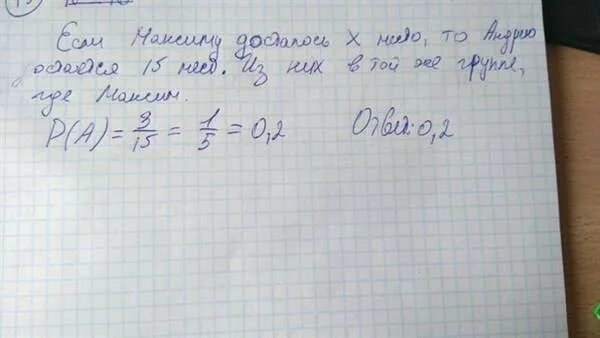 Если Максиму досталось X место, то Андрею
остается 15 мест. Из них в той же группе,
где Максим.
P(A) = 3/15 = 1/5 = 0,2 Ответ: 0,2